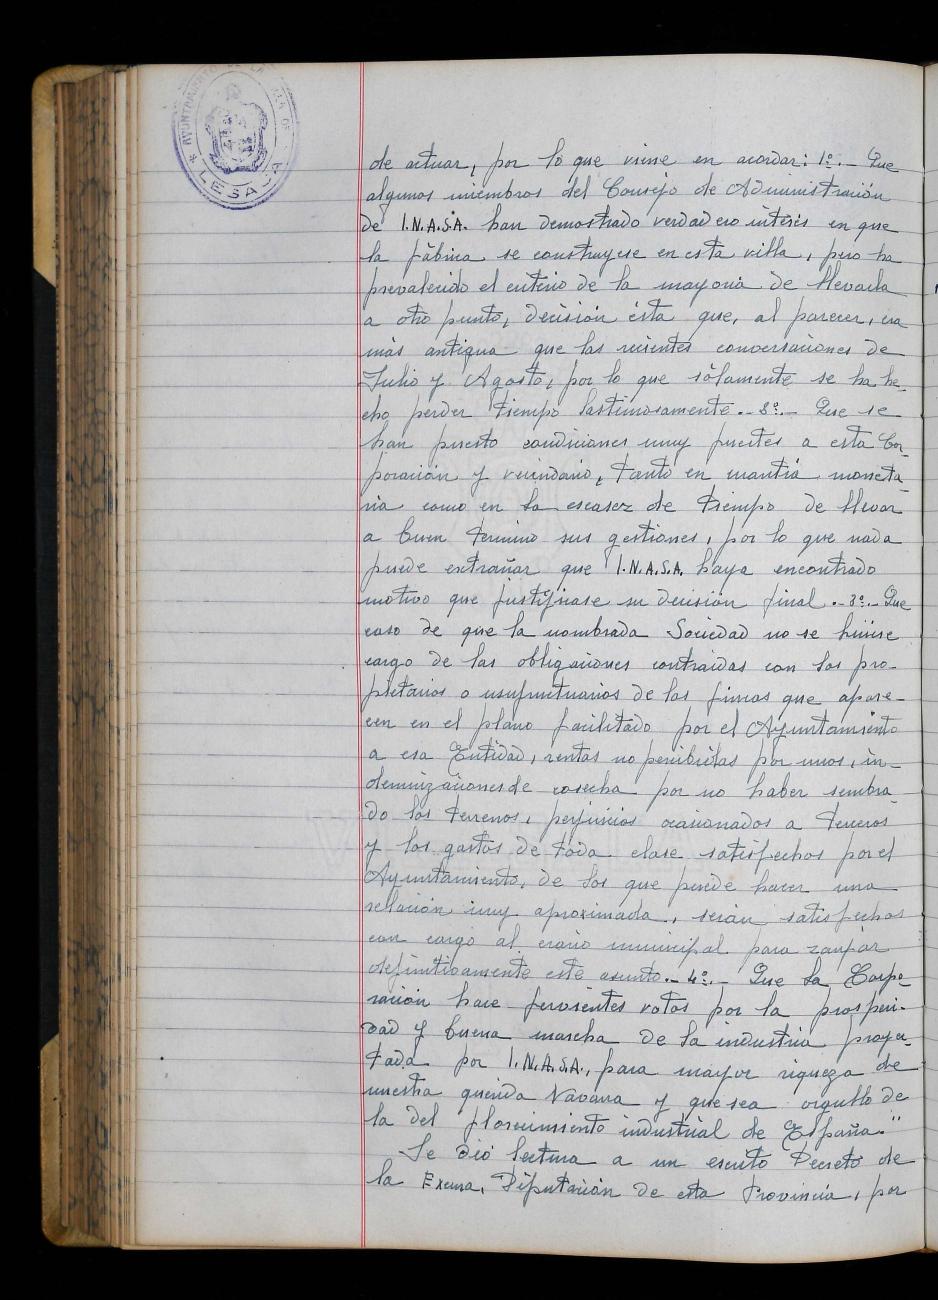 AYUNTAMIENTO DE LA VILLA DE
LESACA
de actuar, por lo que viene en acordar: 1º.- Que
algunos miembros del Consejo de Administración
de I.N.A.S.A. han demostrado verdadero interés en que
la fábrica se construyese en esta villa, pero ha
prevalecido el criterio de la mayoria de llevarla
a otro punto, decisión ésta que, al parecer, era
más antigua que las recientes conversaciones de
Julio y Agosto, por lo que sólamente se ha he-
cho perder tiempo lastimosamente.- 2º.- Que se
han puesto condiciones muy fuertes a esta Cor-
poración y vecindario, tanto en cuantía moneta-
ria como en la escasez de tiempo de llevar
a buen termino sus gestiones, por lo que nada
puede extrañar que I.N.A.S.A. haya encontrado
motivo que justificase su decisión final.- 3º.- Que
caso de que la nombrada Sociedad no se hiciese
cargo de las obligaciones contraidas con los pro-
pietarios o usufructuarios de las fincas que apare-
cen en el plano facilitado por el Ayuntamiento
a esa Entidad, rentas no percibidas por unos, in-
demnizaciones de cosecha por no haber sembra-
do los terrenos, perjuicios ocasionados a terceros
y los gastos de toda clase satisfechos por el
Ayuntamiento, de los que puede hacer una
relación muy aproximada, serán satisfechos
con cargo al erario municipal para zanjar
definitivamente este asunto.- 4º.- Que la Corpo-
ración hace fervientes votos por la prosperi-
dad y buena marcha de la industria proyec-
tada por I.N.A.S.A., para mayor riqueza de
nuestra querida Navarra y que sea orgullo de
la del florecimiento industrial de España."
Se dió lectura a un escrito Decreto de
la Excma. Diputación de esta Provincia, por